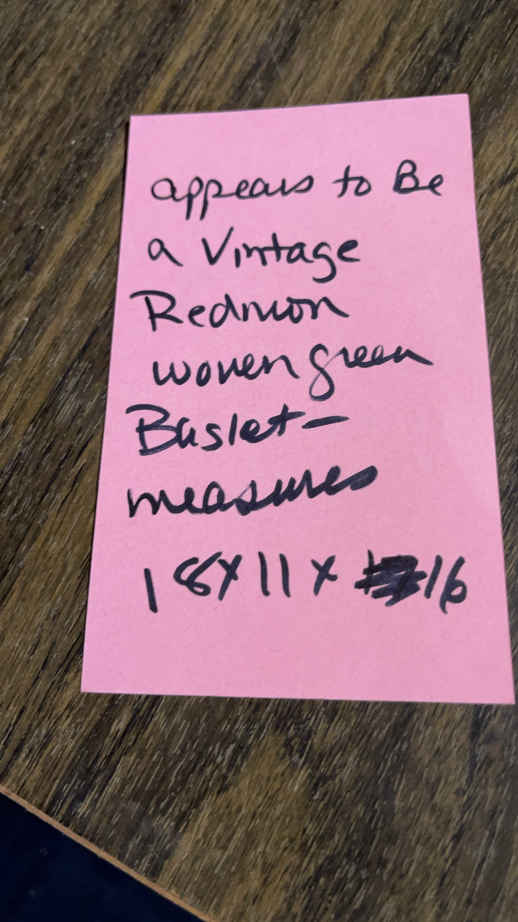 appears to Be
a Vintage
Redmon
woven green
Basket-
measures
18x11x 16